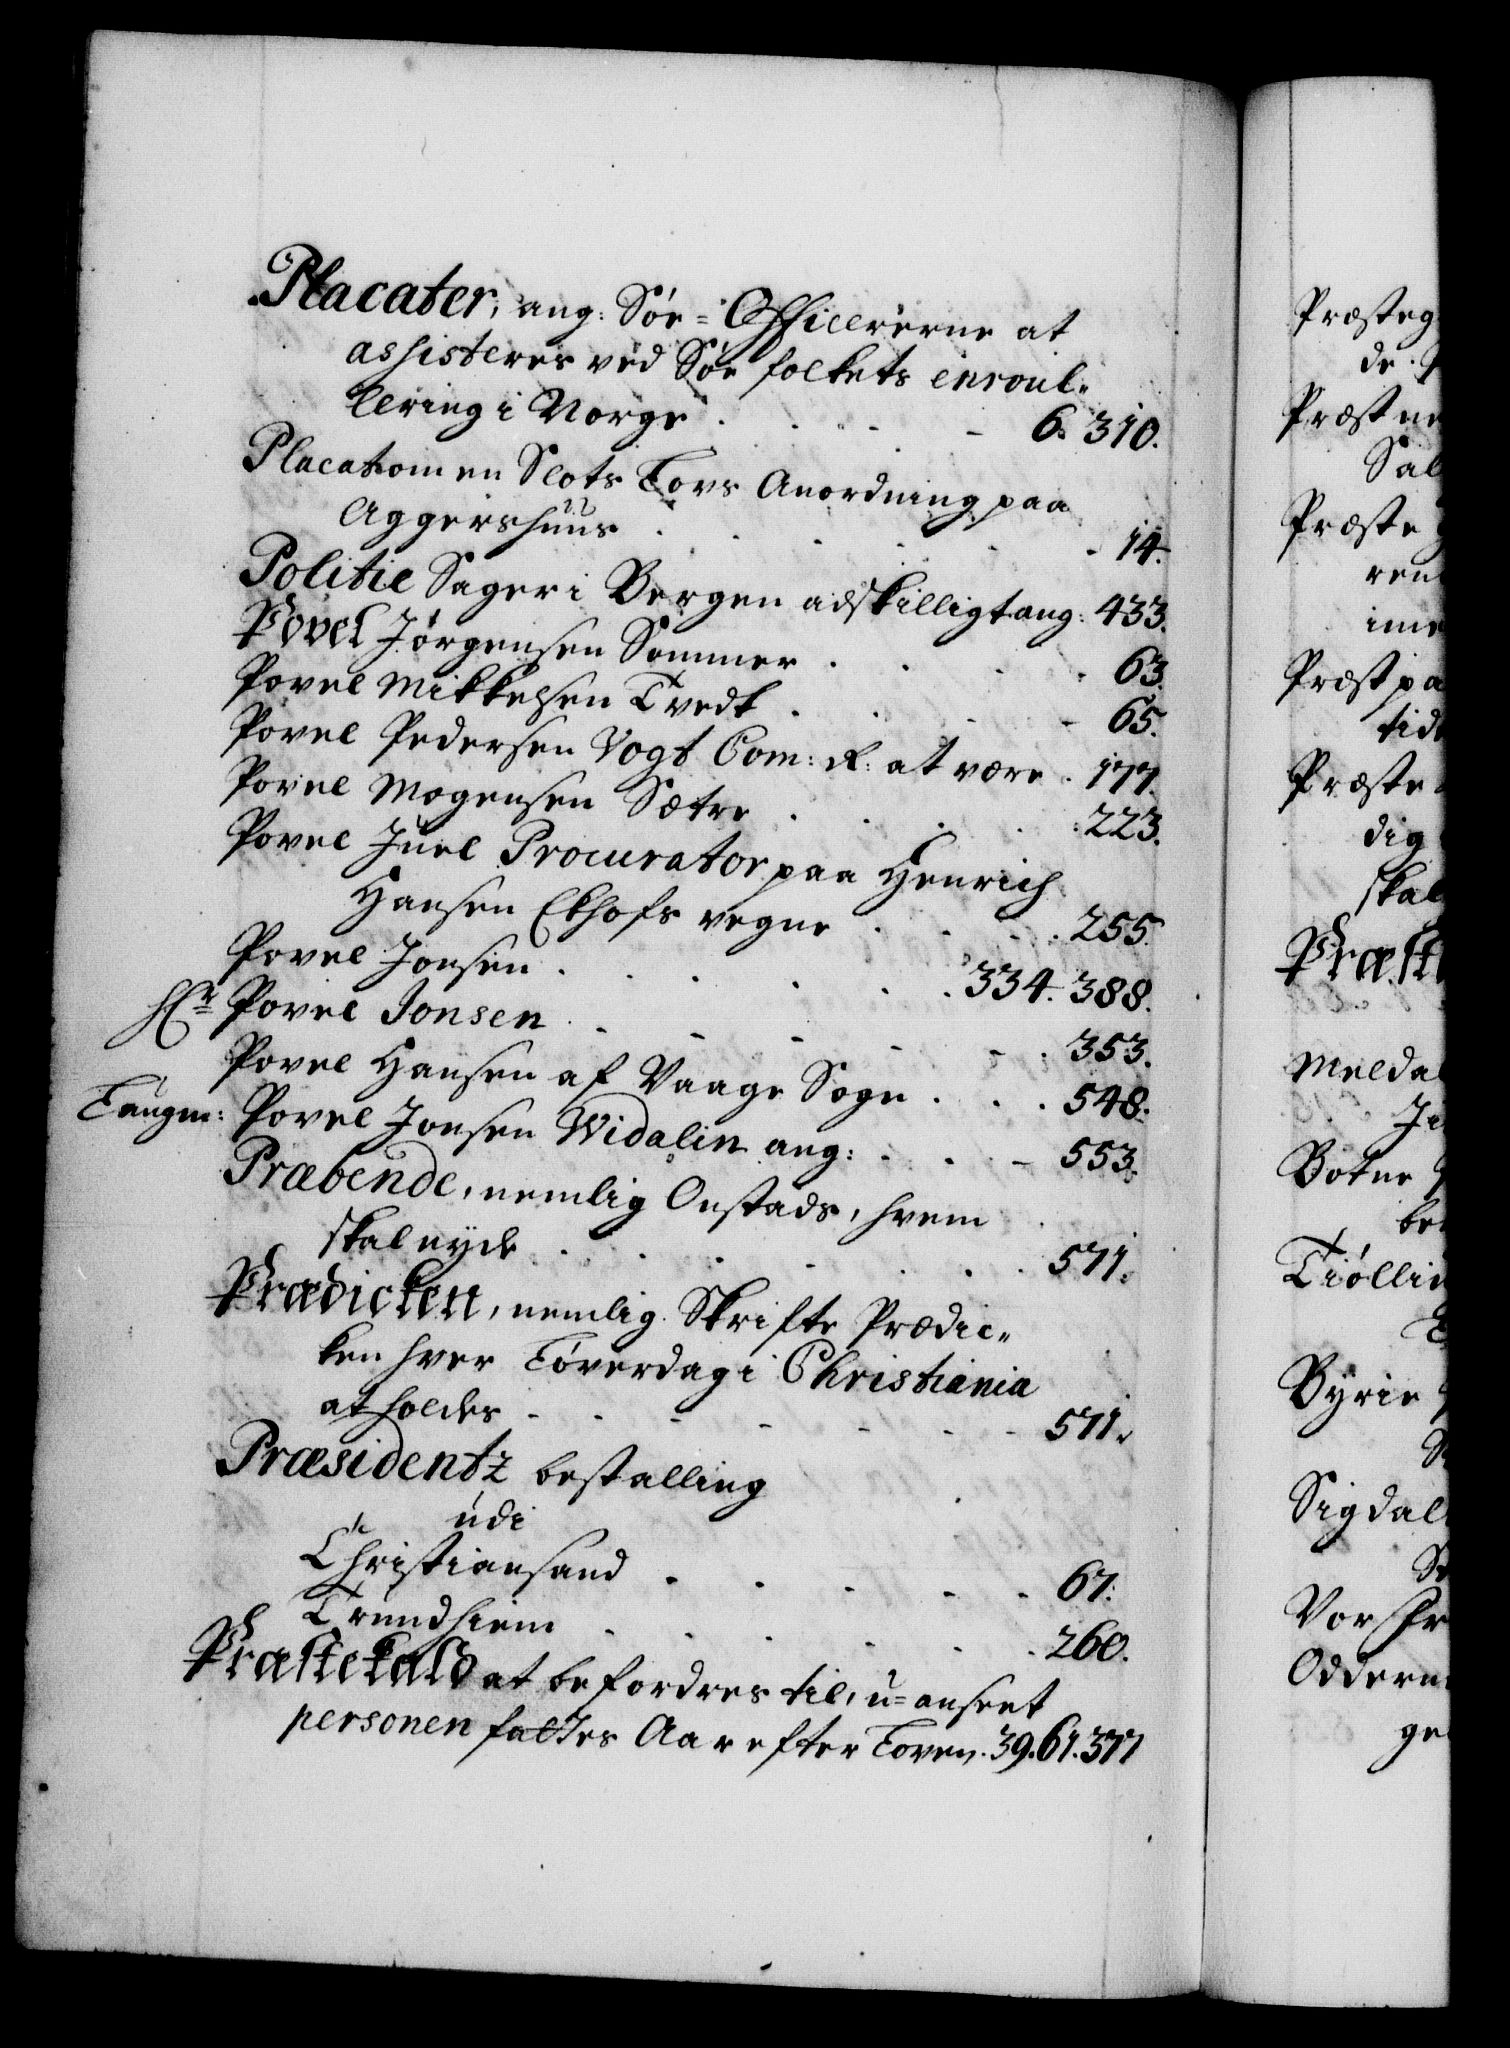 Placater, ang: Söe-Officererne at
assisteres ved Söe folkets enroul„
lering i Norge . . . . 6. 310.
Placat om en Slots Lovs Anordning paa
Aggershuus . . . . . 14.
Politie Sager i Bergen adskilligt ang: 433.
Povel Jörgensen Sommer . . . . 63.
Povel Mikkelsen Tvedt . . . . 65.
Povel Pedersen Vogt Com: R: at være . 177.
Povel Mogensen Sætre . . . . 223.
Povel Juel Procurator paa Henrich
Hansen Ekhofs vegne . . . . 255.
Povel Jonsen . . . . . 334. 388.
Hr Povel Jonsen . . . . . 353.
Povel Hansen af Vaage Sogn . . . 548.
Laugm: Povel Jonsen Widalin ang: . . . 553.
Præbende, nemlig Onstads, hvem
skal nyde . . . . . . 571.
Prædicken, nemlig Skrifte Prædic„
ken hver Löverdag i Christiania
at holdes . . . . . . 571.
Præsidentz bestalling
udi
Christiansand . . . . . 67.
Trundhiem . . . . . 260.
Præstekald at befordres til, u-anseet
personen fattes Aar efter Loven. 39. 61. 377
Præsteg
de.
Præstne
Sal
Præste
ren
ime
Præst pa
tid
Præste
dig
skal
Præst
Meldal
Botne
Tiöllin
Byrie
Sigdal
Vor Fr
Odderne
ge